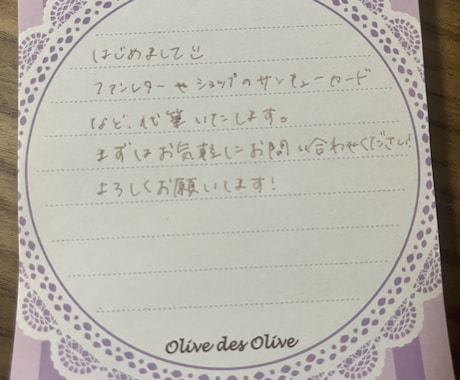 はじめまして☺
ファンレターやショップのサンキューカード
など、代筆いたします。
まずはお気軽にお問い合わせください!
よろしくお願いします!
Olive des Olive